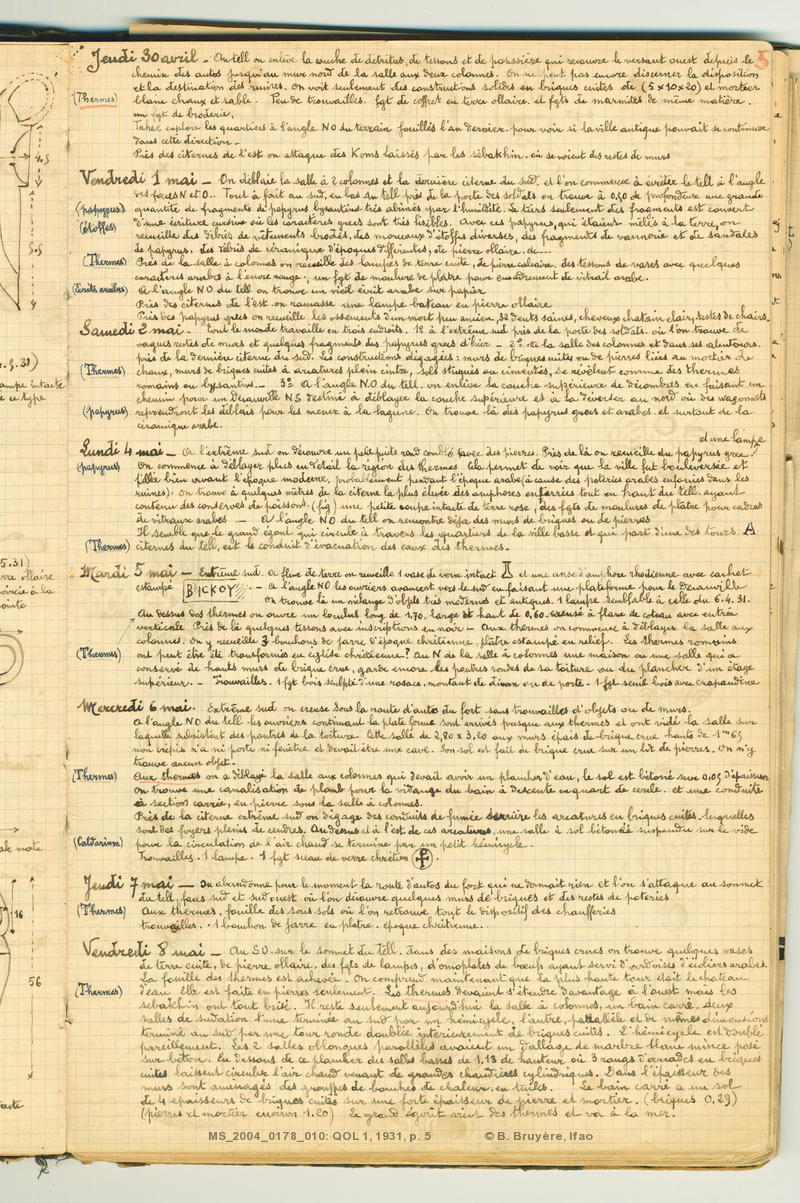 5
Jeudi 30 avril - Au tell on enlève la couche de détritus, de tessons et de poussière qui recouvre le versant ouest depuis le
chemin des autos jusqu'au mur nord de la salle aux deux colonnes. On ne peut pas encore discerner la disposition
et la destination des ruines. On voit seulement des constructions solides en briques cuites de (5 x 10 x 20) et mortier
(Thermes) blanc chaux et sable. Peu de trouvailles. fgt de coffret en terre ollaire et fgts de marmites de même matière.
un fgt de broderie,
Taher explore les quartiers à l'angle NO du terrain fouillés l'an dernier pour voir si la ville antique pouvait se continuer
dans cette direction -
Près des citernes de l'est on attaque des Koms laissés par les sébakhin où se voient des restes de murs
Vendredi 1 mai - On déblaie la salle à 2 colonnes et la dernière citerne du sud, et l'on commence à écrêter le tell à l'angle
des faces N et O.. Tout à fait au sud, en bas du tell près de la porte des soldats on trouve à 0,50 de profondeur une grande
(papyrus) quantité de fragments de papyrus byzantins très abimés par l'humidité. Le tiers seulement des fragments est couvert
(étoffes) d'une écriture cursive où les caractères grecs sont très lisibles. Avec ces papyrus, qui étaient mêlés à la terre, on
recueille des débris de vêtements brodés, des morceaux d'étoffes diverses, des fragments de vannerie et de sandales
de papyrus, des débris de céramique d'époques différentes, de pierre ollaire &c --
(Thermes) Près de la salle à colonnes on recueille des lampes de terre cuite, de pierre calcaire, des tessons de vases avec quelques
caractères arabes à l'encre rouge, un fgt de moulure de plâtre pour encadrement de vitrail arabe.
(écrits arabes) A l'angle NO du tell on trouve un vieil écrit arabe sur papier
Près des citernes de l'est on ramasse une lampe bateau en pierre ollaire
Près des papyrus grecs on recueille les ossements d'un mort peu ancien, 32 dents saines, cheveux chatain clair, restes de chairs.
Samedi 2 mai - Tout le monde travaille en trois endroits. 1º à l'extrême sud près de la porte des soldats où l'on trouve de
vagues restes de murs et quelques fragments des papyrus grecs d'hier - 2º à la salle des colonnes et dans ses alentours,
près de la dernière citerne du sud. Les constructions dégagées : murs de briques cuites ou de pierres liées au mortier de
(Thermes) chaux, murs de briques cuites à arcatures plein cintre, sols stuqués ou cimentés, se révèlent comme des thermes
romains ou byzantins.- 3º A l'angle N.O du tell. on enlève la couche supérieure de décombres en faisant un
chemin pour un Decauville NS destiné à déblayer la couche supérieure et à la déverser au nord où des wagonnets
(papyrus) reprendront les déblais pour les mener à la lagune. On trouve là des papyrus grecs et arabes et surtout de la
céramique arabe.
et une lampe
Lundi 4 mai - A l'extrême sud on découvre un petit puits rond comblé avec des pierres. Près de là on recueille du papyrus grec
(papyrus) On commence à déblayer plus en détail la région des thermes. Cela permet de voir que la ville fut bouleversée et
pillée bien avant l'époque moderne, probablement pendant l'époque arabe (à cause des poteries arabes enfouies dans les
ruines). On trouve à quelques mètres de la citerne la plus élevée des amphores enterrées tout en haut du tell, ayant
contenu des conserves de poissons. (fig) une petite coupe intacte de terre rose, des fgts de moulures de plâtre pour cadres
de vitraux arabes - A l'angle NO du tell on rencontre déjà des murs de briques ou de pierres
Il semble que le grand égout qui circule à travers les quartiers de la ville basse et qui part d'une des tours A
(Thermes) citernes du tell, est le conduit d'évacuation des eaux des thermes.
Mardi 5 mai - Extrême sud. A fleur de terre on recueille 1 vase de verre intact et une anse d'amphore rhodienne avec cachet
estampé . - A l'angle NO les ouvriers avancent vers le sud en faisant une plateforme pour le Decauville
On trouve là un mélange d'objets très modernes et antiques. 1 lampe semblable à celle du 6.4.31.
Au dessus des thermes on ouvre un loculus long de 1,70, large et haut de 0,60 creusé à flanc de coteau avec entrée
verticale Près de là quelques tessons avec inscriptions en noir - Aux thermes on commence à déblayer la salle aux
colonnes. On y recueille 3 bouchons de jarre d'époque chrétienne, plâtre estampé en relief. Les thermes romains
(Thermes) ont peut être été transformés en église chrétienne ? Au N de la salle à colonnes une maison ou une salle qui a
conservé de hauts murs de brique crue, garde encore les poutres rondes de sa toiture ou du plancher d'un étage
supérieur. - Trouvailles. 1 fgt bois sculpté d'une rosace, montant de divan ou de porte. 1 fgt seuil bois avec crapaudine
Mercredi 6 mai. Extrême sud on creuse sous la route d'auto du fort sans trouvailles d'objets ou de murs.
A l'angle NO du tell les ouvriers continuant la plate forme sont arrivés presque aux thermes et ont vidé la salle sur
laquelle subsistent des poutres de la toiture. Cette salle de 2,80 x 3,20 aux murs épais de brique crue hauts de 1m65
non crépis n'a ni porte ni fenêtre et devait être une cave. Son sol est fait de brique crue sur un lit de pierres. On n'y
trouve aucun objet.
(Thermes) Aux thermes on a déblayé la salle aux colonnes qui devait avoir un plancher d'eau, le sol est bétonné sur 0,05 d'épaisseur
on trouve une canalisation de plomb pour la vidange du bain à descente en quart de cercle et une conduite
à section carrée, en pierre sous la salle à colonnes.
Près de la citerne extrême sud on dégage des conduits de fumée derrière les arcatures en briques cuites, lesquelles
sont des foyers pleins de cendres. Au dessus et à l'est de ces arcatures, une salle à sol bétonné suspendu sur le vide
(Caldarium) pour la circulation de l'air chaud se termine par un petit hémicycle..
Trouvailles. 1 lampe. 1 fgt sceau de verre chrétien .
Jeudi 7 mai - On abandonne pour le moment la route d'autos du fort qui ne donnait rien et l'on s'attaque au sommet
du tell, faces sud et sud ouest où l'on découvre quelques murs de briques et des restes de poteries
(Thermes) Aux thermes, fouille des sous sols où l'on retrouve tout le dispositif des chaufferies
trouvailles. 1 bouchon de jarre en plâtre. époque chrétienne..
Vendredi 8 mai - Au SO. sur le sommet du tell. Dans des maisons de briques crues on trouve quelques vases
de terre cuite, de pierre ollaire, des fgts de lampes, d'omoplates de bœufs ayant servi d'ardoises d'écoliers arabes.
La fouille des thermes est achevée. On comprend maintenant que la plus haute tour était le chateau
(Thermes) d'eau. Elle est faite en pierres seulement. Les thermes devaient s'étendre davantage à l'ouest mais les
sebakhin ont tout brisé. Il reste seulement aujourd'hui la salle à colonnes, un bain carré, deux
salles de sudation l'une terminée au sud par un hémicycle, l'autre, parallèle et de mêmes dimensions
terminé au sud par une tour ronde doublée intérieurement de briques cuites. L'hémicycle est doublé
pareillement. Les 2 salles oblongues parallèles avaient un dallage de marbre blanc mince posé
sur béton. En dessous de ce plancher des salles basses de 1,13 de hauteur où 3 rangs d'arcades en briques
cuites laissent circuler l'air chaud venant de grandes chaudières cylindriques. Dans l'épaisseur des
murs sont aménagés des groupes de bouches de chaleur, en tuiles. Le bain carré a un sol
de 4 épaisseurs de briques cuites sur une forte épaisseur de pierre et mortier. (briques 0,29)
(pierres et mortier environ 1.20) Le grand égout vient des thermes et va à la mer.
MS_2004_0178_010: QOL 1, 1931, p. 5 © B. Bruyère, Ifao